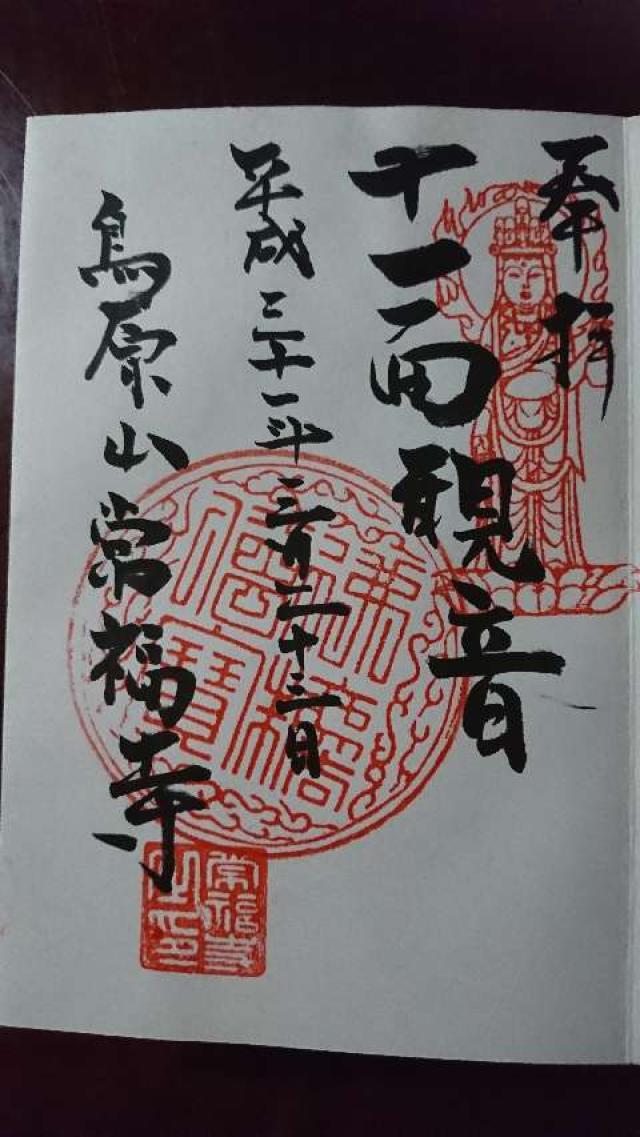 奉拝
十一面観音
平成三十一年三月二十三日
鳥原山常福寺
佛法僧寶
常福寺